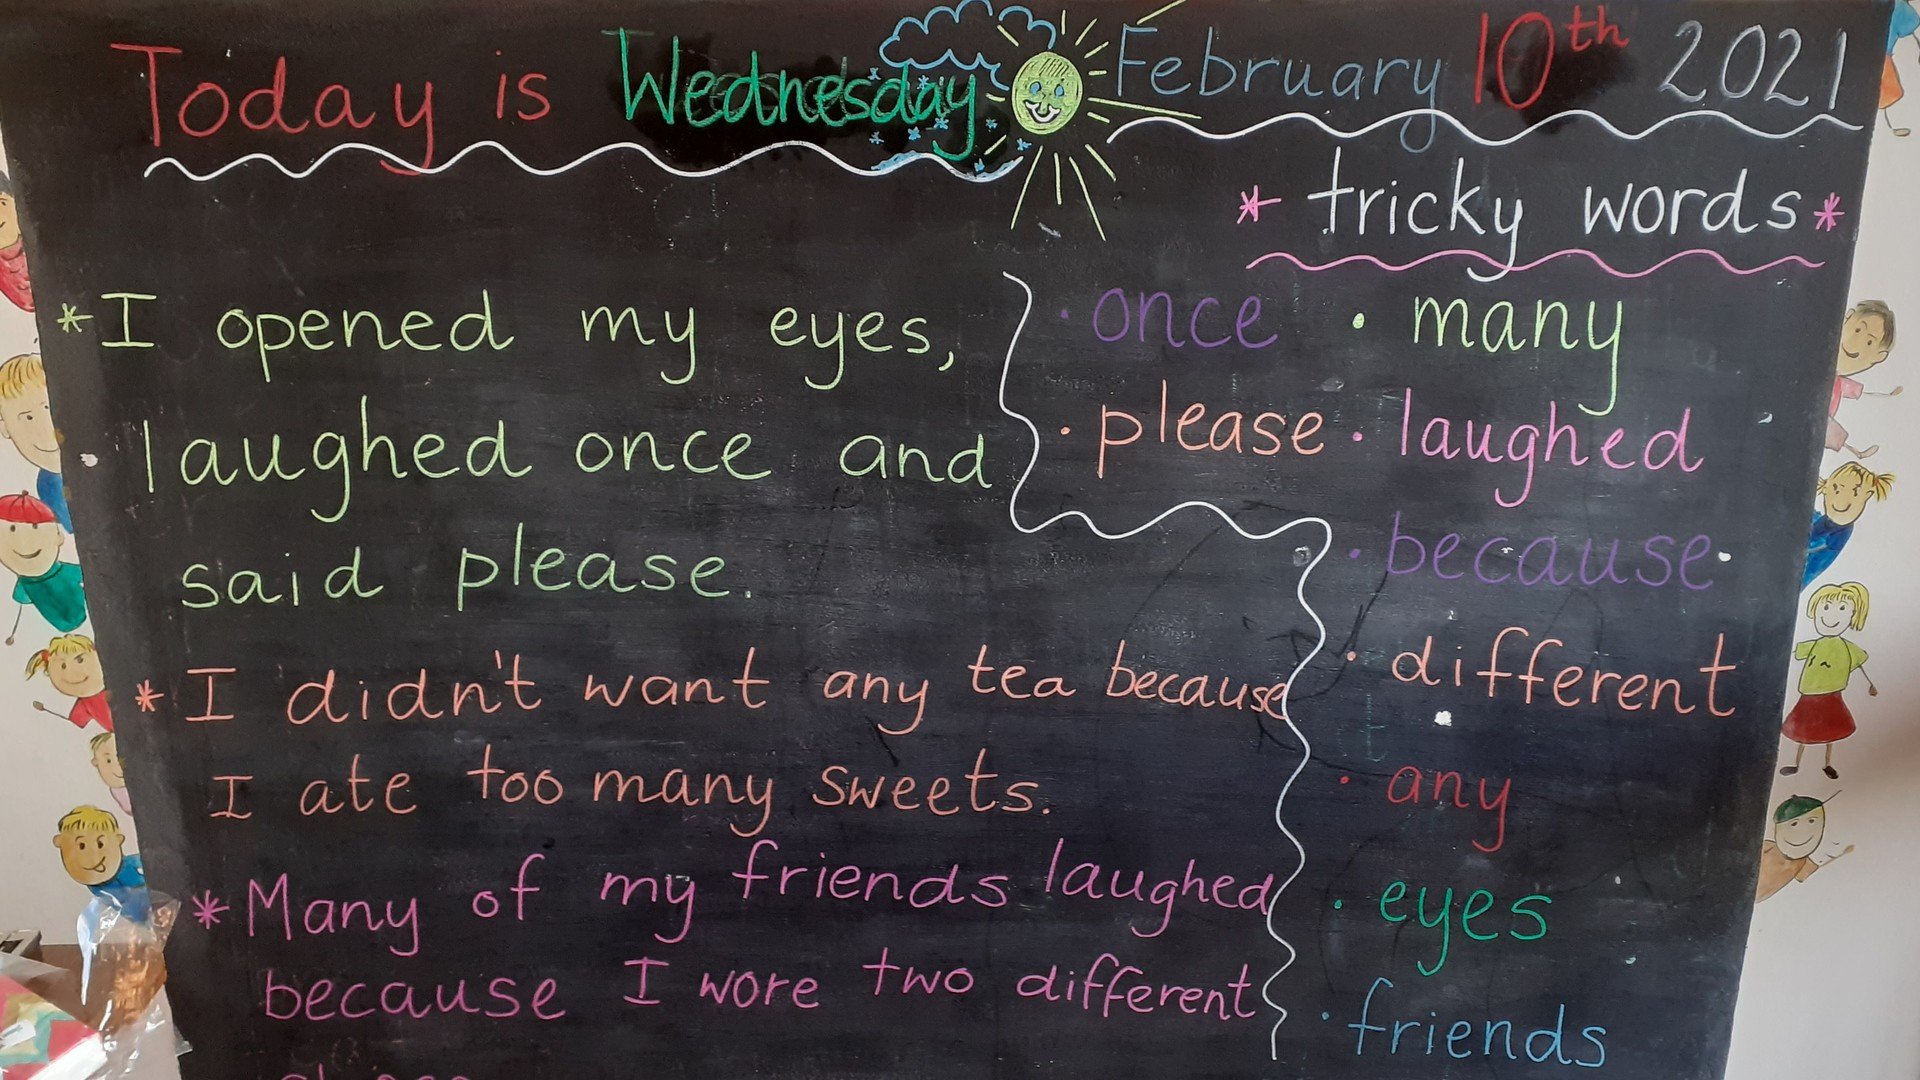 Today is Wednesday February 10th 2021
* tricky words *
* I opened my eyes,
laughed once and
said please.
* I didn't want any tea because
I ate too many sweets.
* Many of my friends laughed
because I wore two different
· once · many
· please · laughed
· because
· different
· any
· eyes
· friends